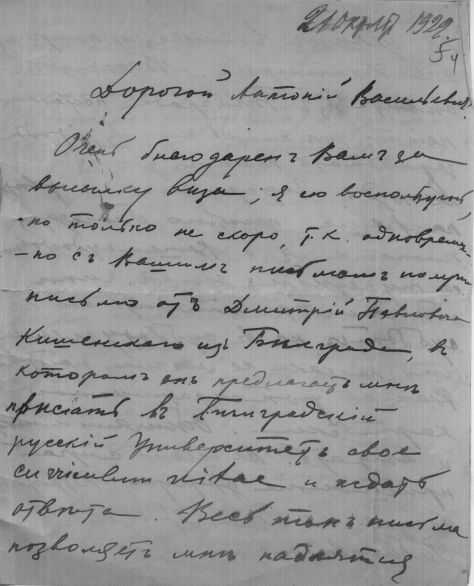 Дорогой Антоній Васильевич
Очень благодаренъ Вамъ за
высылку визы; я ею воспользуюсь,
но только не скоро, т.к. одновремен-
-но съ Вашимъ письмомъ получ
письмо отъ Дмитрій Павловича
Кишенскаго изъ Бѣлграда, въ
которомъ онъ предлагаетъ мнѣ
прислать въ Бѣлградскій
русскій Университетъ свое
curriculum vitae и ждать
отвѣта. Весь тонъ письма
позволяетъ мнѣ надѣятся